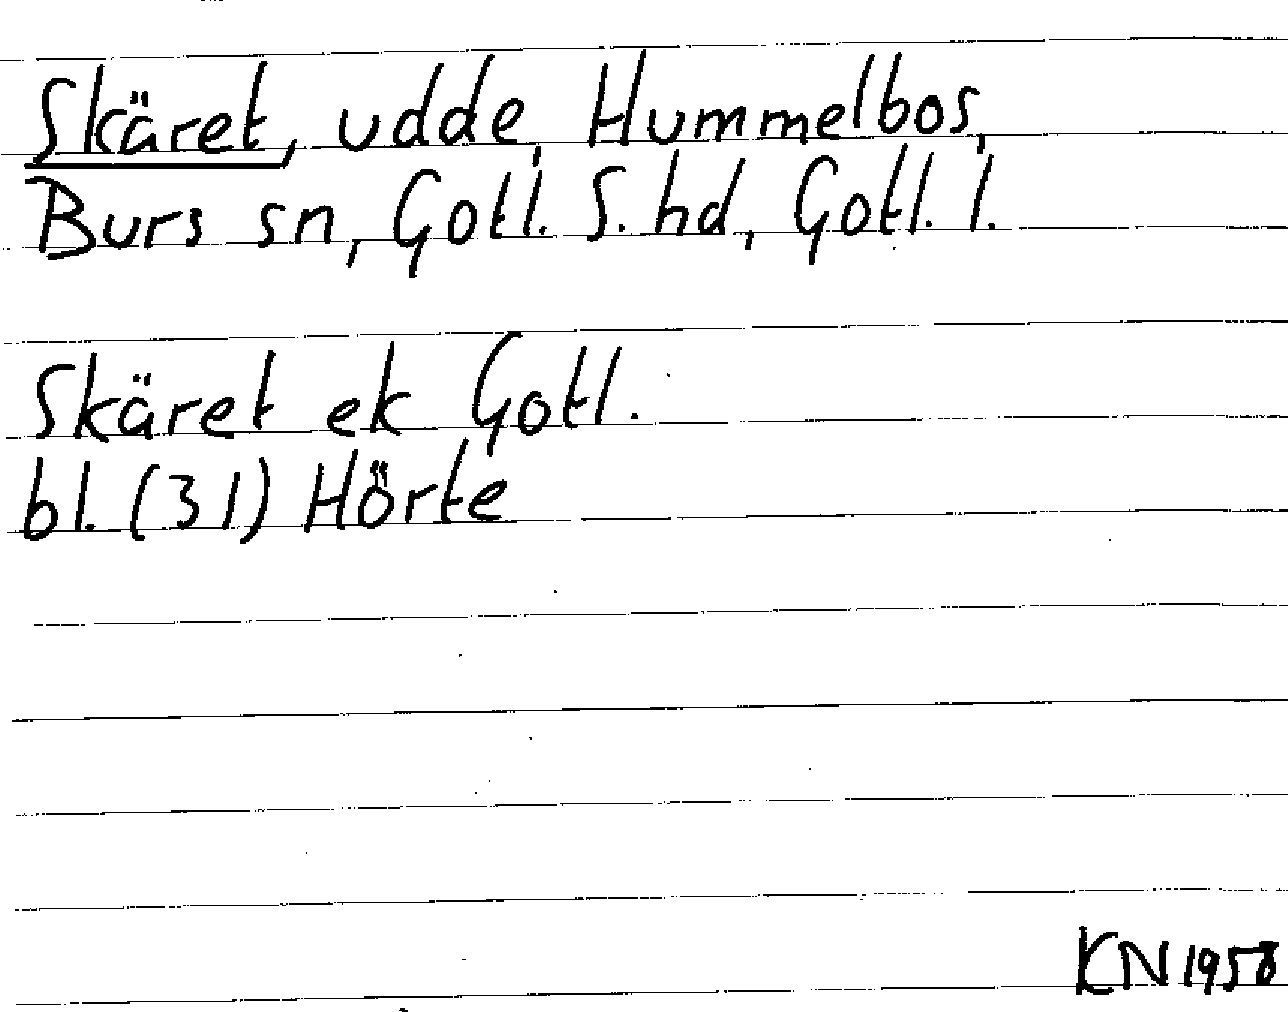 Skäret, udde, Hummelbos,
Burs sn, Gotl. S. hd, Gotl. l.
Skäret ek Gotl.
bl. (31) Hörte
KN 1958